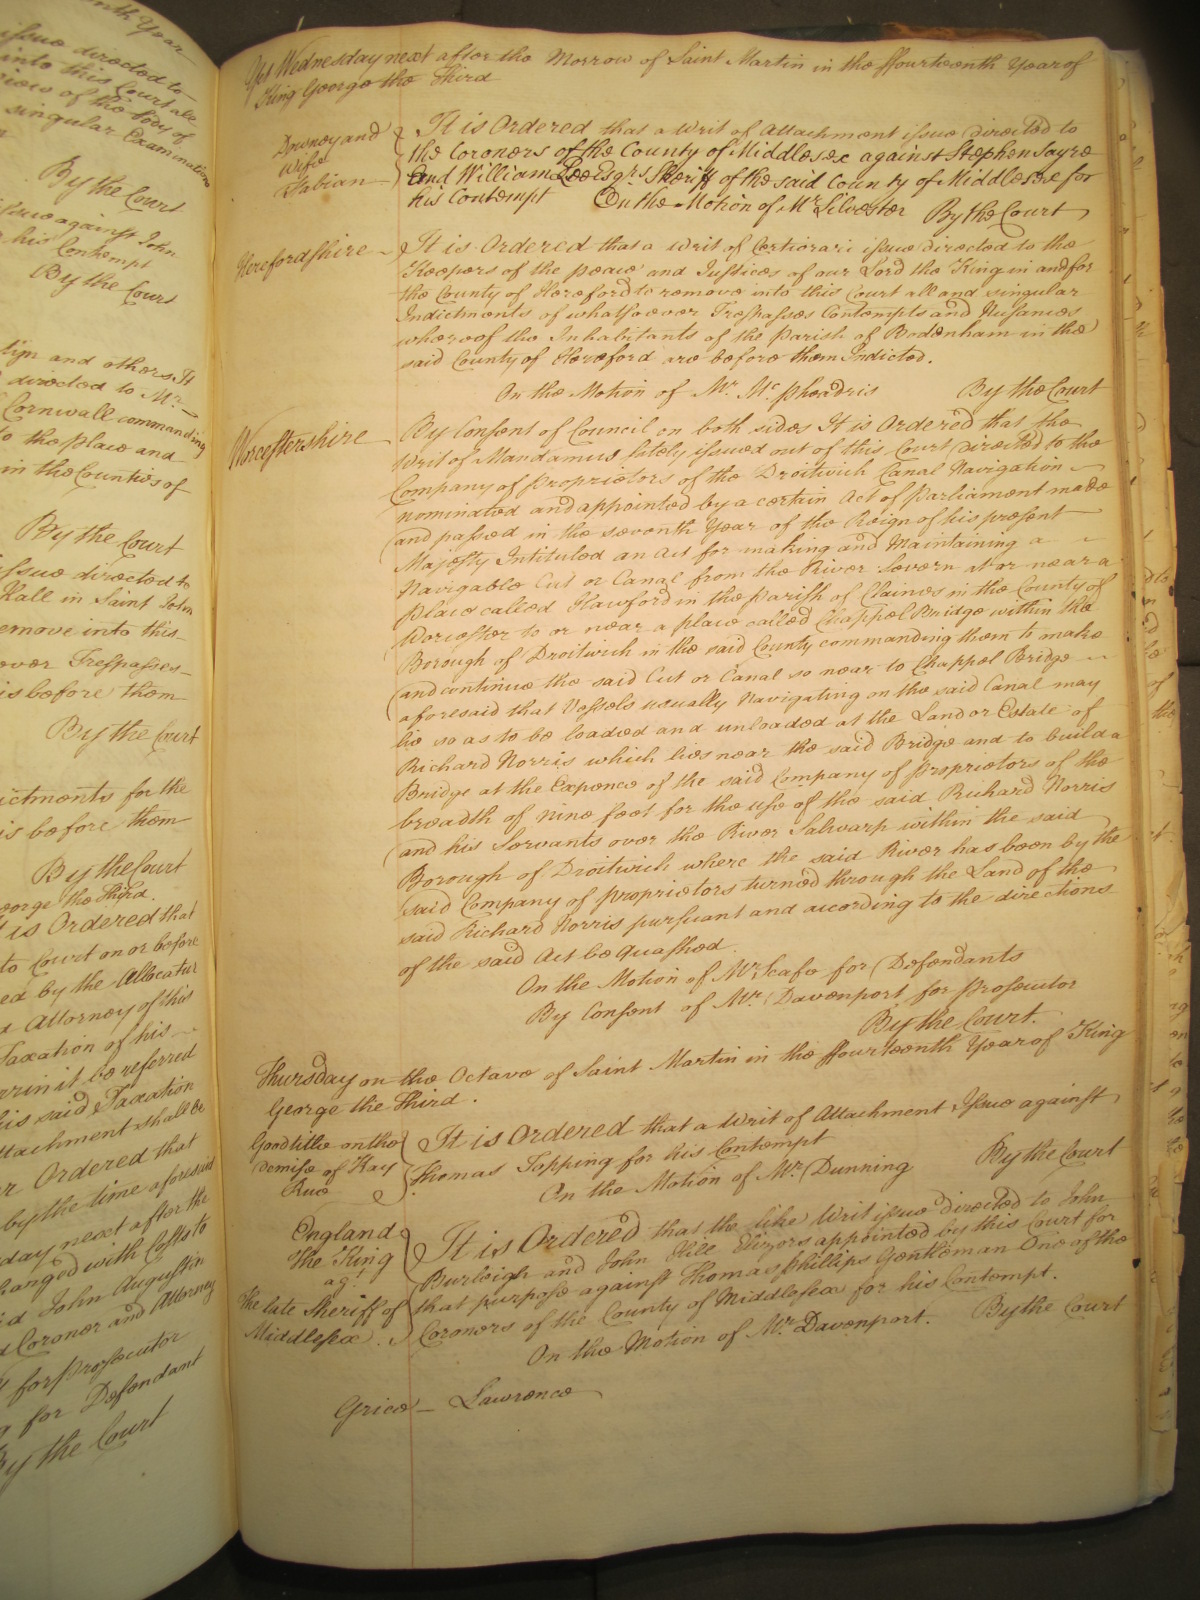 nth Year
issue directed to
into this Court all
of the body of
singular Examinations
By the Court
issue against John
his Contempt
By the Court
and others It
directed to Mr.
Cornwall commanding
to the place and
in the Counties of
By the Court
issue directed to
Hall in Saint John
remove into this
over Trespasses
is before them
By the Court
ictments for the
is before them
By the Court
George the Third.
It is Ordered that
to Court on or before
ed by the Allocatur
Attorney of this
Taxation of his
it be referred
his said Taxation
ttachment shall be
Ordered that
by the time aforesaid
day next after the
hanged with Costs to
John Augustin
Coroner and Attorney
for Prosecutor
for Defendant
By the Court
Yet Wednesday next after the Morrow of Saint Martin in the ffourteenth Year of
King George the Third
Downey and
wife
Fabian
It is Ordered that a Writ of Attachment issue directed to
the Coroners of the County of Middlesex against Stephen Sayre
and William Lee Esqrs Sheriff of the said County of Middlesex for
his Contempt On the Motion of Mr Silvester By the Court
Herefordshire
It is Ordered that a Writ of Certiorari issue directed to the
Keepers of the peace and Justices of our Lord the King in and for
the County of Hereford to remove into this Court all and singular
Indictments of whatsoever Trespasses Contempts and Nusances
whereof the Inhabitants of the Parish of Bodenham in the
said County of Hereford are before them Indicted.
On the Motion of Mr. Mc.pheadris By the Court
Worcestershire
By Consent of Council on both sides It is Ordered that the
Writ of Mandamus lately issued out of this Court directed to the
Company of Proprietors of the Droitwich Canal Navigation
nominated and appointed by a certain Act of Parliament made
and passed in the seventh Year of the Reign of his present
Majesty Intituled an Act for making and Maintaining a
Navigable Cut or Canal from the River Severn at or near a
place called Hawford in the Parish of Claines in the County of
Worcester to or near a place called Chappel Bridge within the
Borough of Droitwich in the said County commanding them to make
and continue the said Cut or Canal so near to Chappel Bridge
aforesaid that Vessels usually Navigating on the said Canal may
lie so as to be loaded and unloaded at the Land or Estate of
Richard Norris which lies near the said Bridge and to build a
Bridge at the Expence of the said Company of Proprietors of the
breadth of nine foot for the use of the said Richard Norris
and his Servants over the River Salwarp within the said
Borough of Droitwich where the said River has been by the
said Company of proprietors turned through the Land of the
said Richard Norris pursuant and according to the directions
of the said Act be quashed.
On the Motion of Mr. Scafe for Defendants
By Consent of Mr. Davenport for Prosecutor
By the Court.
Thursday on the Octave of Saint Martin in the ffourteenth Year of King
George the Third.
Goodtitle on the
demise of Hay
Rue
It is Ordered that a Writ of Attachment Issue against
Thomas Topping for his Contempt
On the Motion of Mr. Dunning By the Court
England
The King
agt.
The late Sheriff of
Middlesex.
It is Ordered that the like Writ issue directed to John
Burleigh and John Hill Elizors appointed by this Court for
that purpose against Thomas Phillips Gentleman One of the
Coroners of the County of Middlesex for his Contempt.
On the Motion of Mr. Davenport. By the Court
Grice - Lawrence